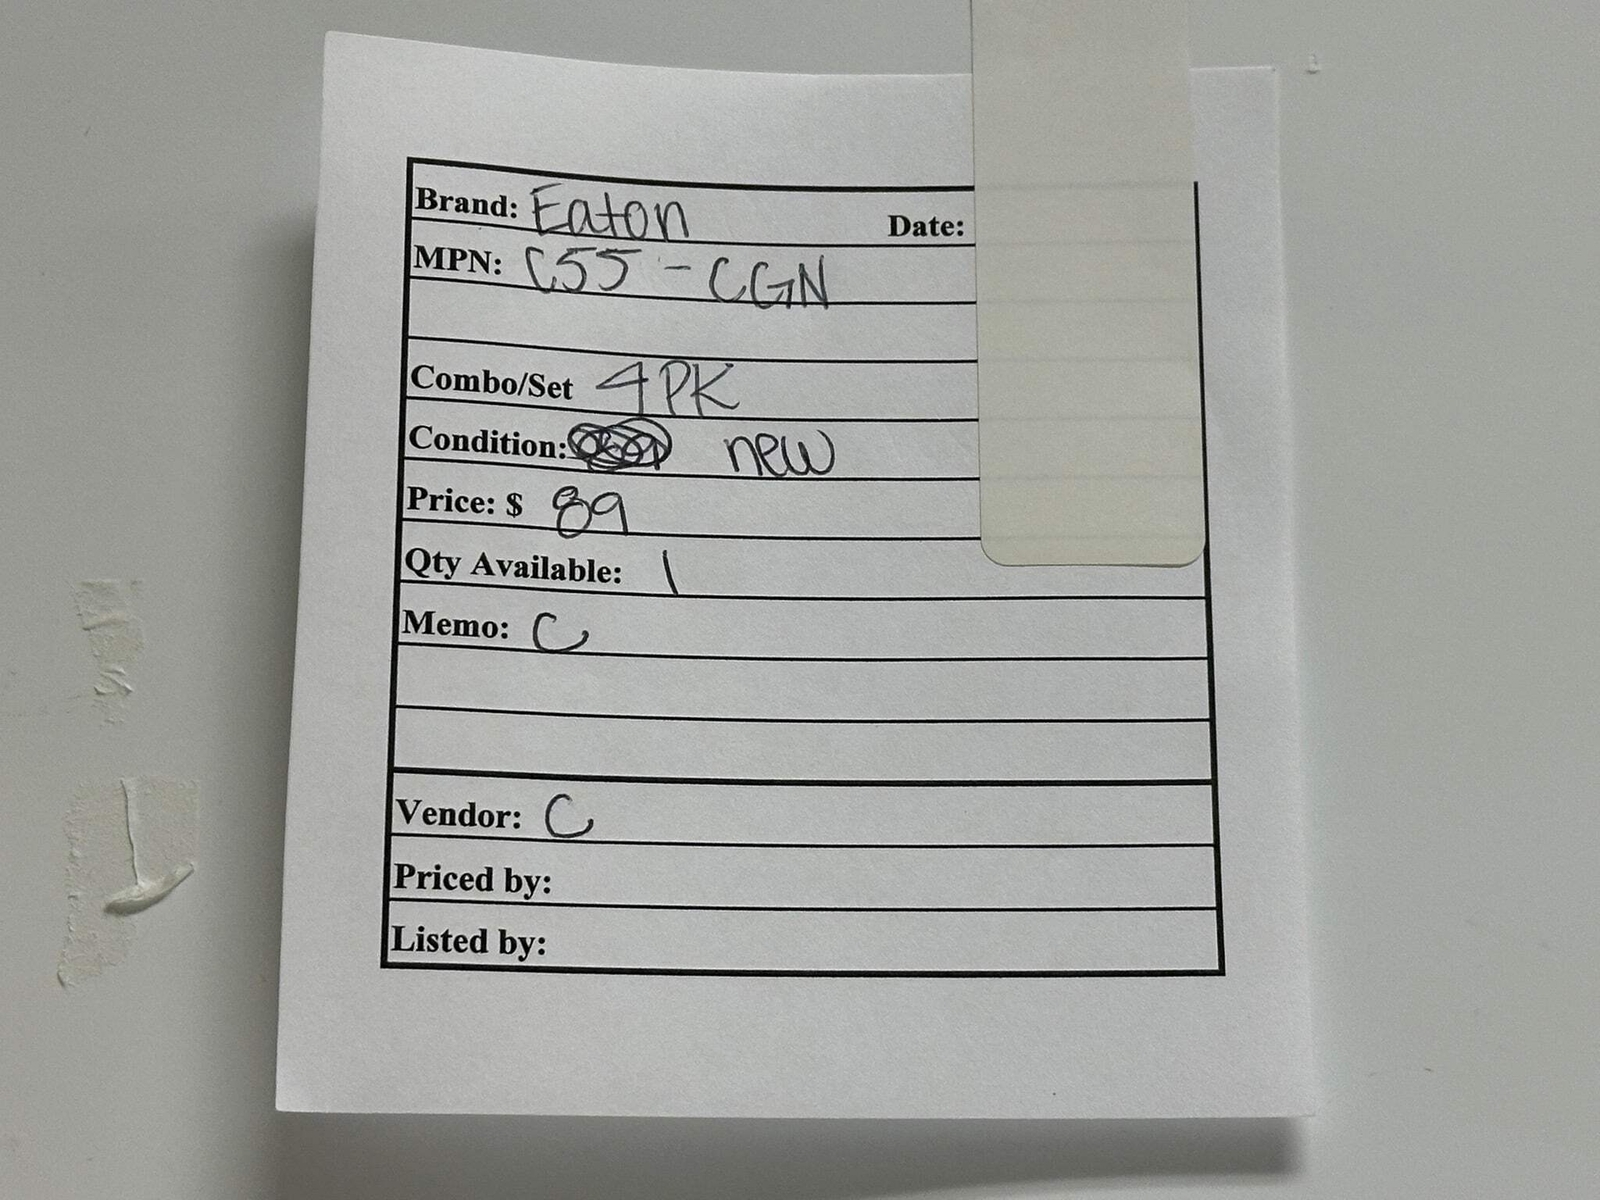 Brand: Eaton Date:
MPN: C55 - CGN
Combo/Set 4PK
Condition: new
Price: $ 89
Qty Available: 1
Memo: C
Vendor: C
Priced by:
Listed by: